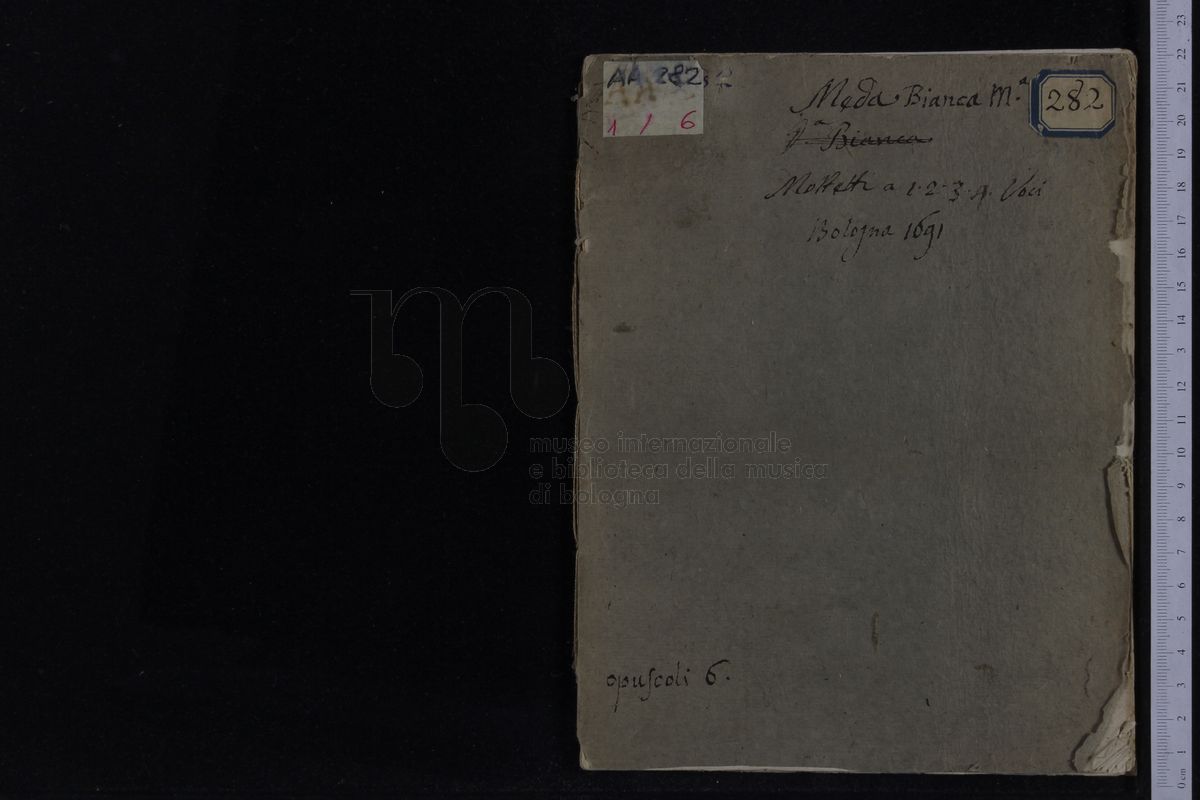 AA 282
1 / 6
Meda Bianca M.ª
282
Bianca
Mottetti a 1. 2. 3. 4. Voci
Bologna 1691
museo internazionale
e biblioteca della musica
di bologna
opuſcoli 6.
23
22
21
20
19
18
17
16
15
14
3
12
11
10
9
8
7
6
5
4
3
2
1
0 cm